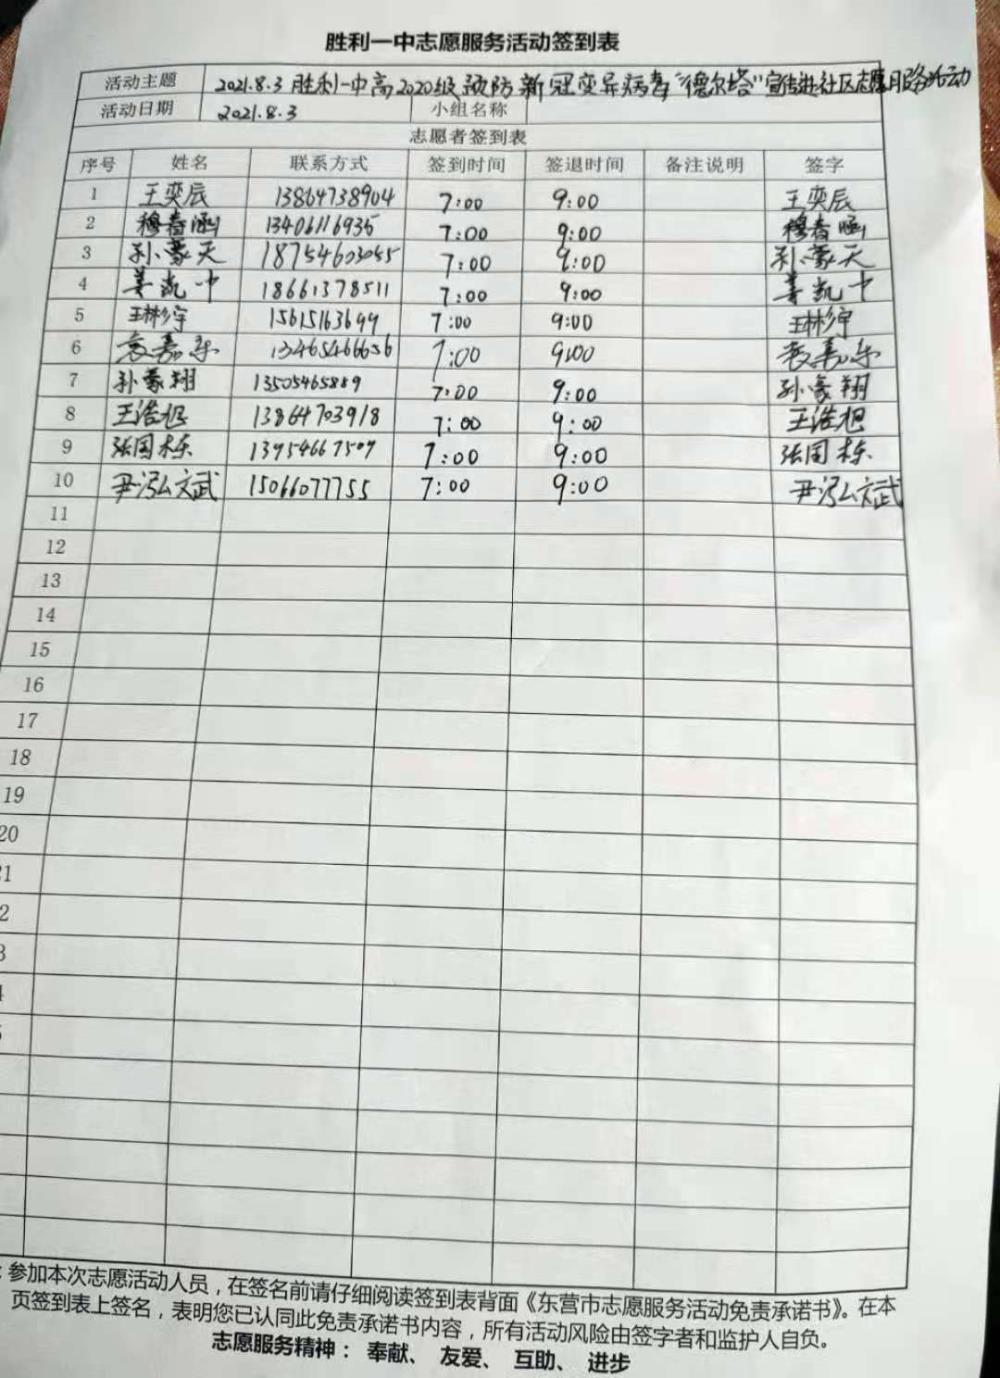 胜利一中志愿服务活动签到表
活动主题 2021.8.3 胜利一中高2020级预防新冠变异病毒“德尔塔”宣传进社区志愿服务活动
活动日期 2021.8.3 小组名称
志愿者签到表
序号 姓名 联系方式 签到时间 签退时间 备注说明 签字
1 王奕辰 13864738904 7:00 9:00 王奕辰
2 穆春涵 13406116935 7:00 9:00 穆春涵
3 孙豪天 18754603055 7:00 9:00 孙豪天
4 姜凯中 18661378511 7:00 9:00 姜凯中
5 王彬宇 15615163699 7:00 9:00 王彬宇
6 袁嘉乐 13465466656 7:00 9:00 袁嘉乐
7 孙豪翔 13505465889 7:00 9:00 孙豪翔
8 王浩旭 13864703918 7:00 9:00 王浩旭
9 张国栋 13954667507 7:00 9:00 张国栋
10 尹泓文武 15066077755 7:00 9:00 尹泓文武
11
12
13
14
15
16
17
18
19
20
参加本次志愿活动人员，在签名前请仔细阅读签到表背面《东营市志愿服务活动免责承诺书》。在本
页签到表上签名，表明您已认同此免责承诺书内容，所有活动风险由签字者和监护人自负。
志愿服务精神： 奉献、 友爱、 互助、 进步